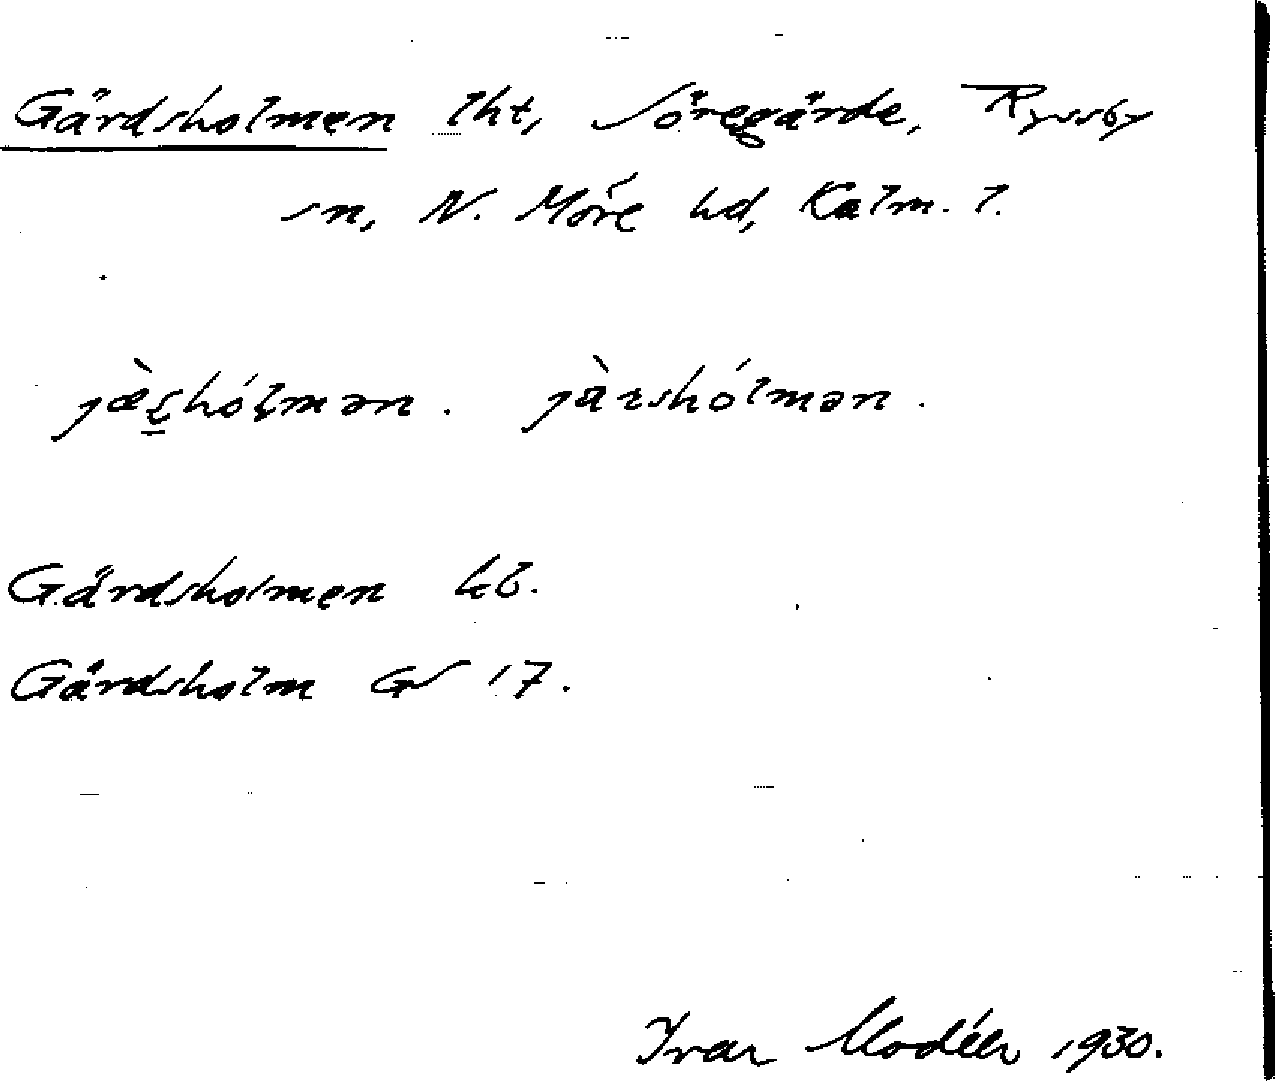 Gärdsholmen lht, Söregärde, Ryssby
sn, N. Möre hd, Kalm. l.
jæ̀s̱hól̥mən. jàrshólmən.
Gärdsholmen kb.
Gärdsholm GV 17.
Ivar Modéer 1930.